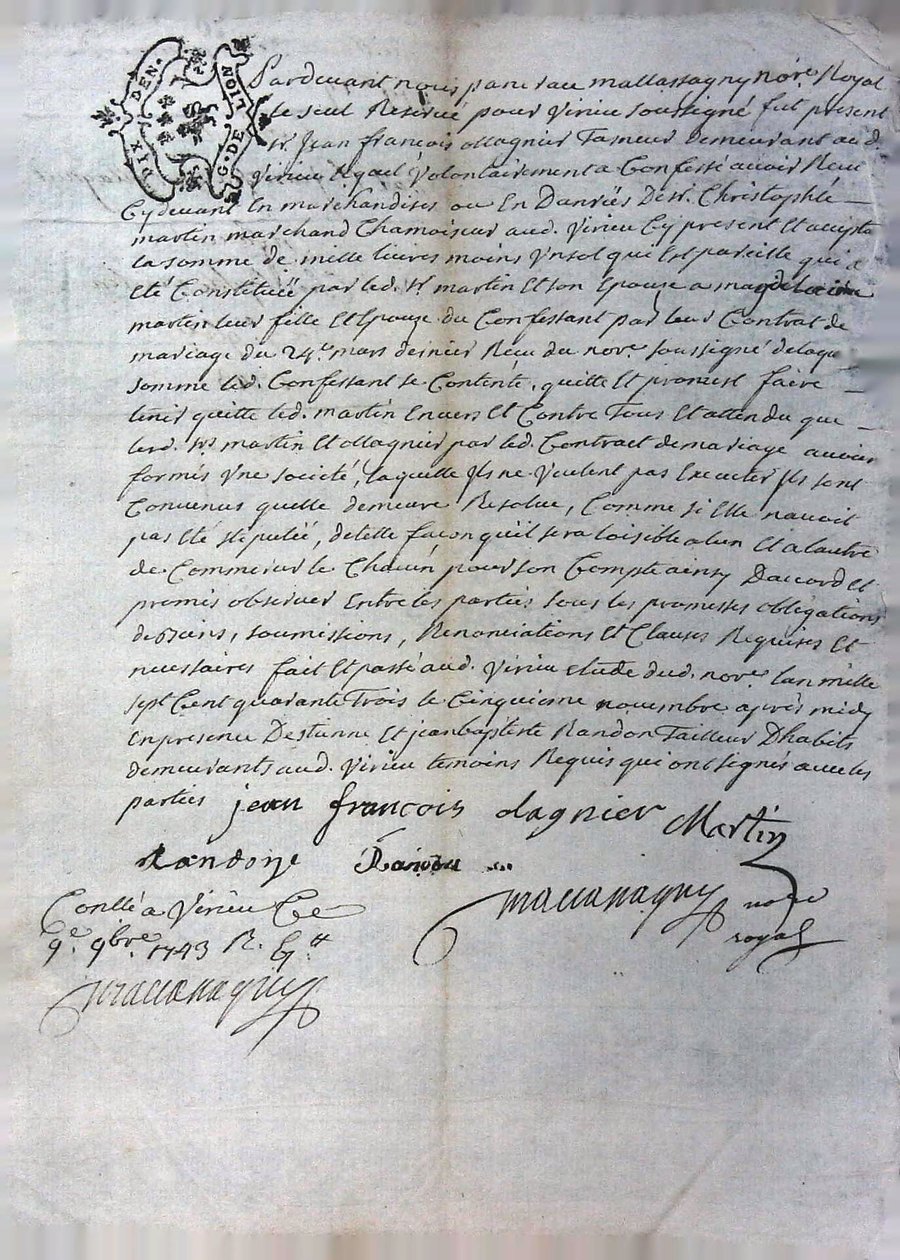 DIX DEN. G. DE LION
Pardevant nous pancrace mallassagny nore. Royal
le seul Reservé pour Virieu soussigné fut present
sr. Jean françois ollagnier Tasneur demeurant aud.
Virieu Lequel Volontairement a Confessé avoir Receu
Cydevant En marchandises ou En Danrëes De sr. Christophle
martin marchand Chamoiseur aud. Virieu Cy present Et acceptant
la somme de mille livres moins Un sol qui Est pareille qui a
Eté Constituëe par led. sr. martin Et son Epouse a magdelaine
martin leur fille Et Epouze du Confessant par leur Contrat de
mariage du 24e. mars dernier Receu du nore. soussigné de laque
somme led. Confessant se Contente, quitte Et promest faire
tenir quitte led. martin Envers Et Contre Tous Et attendu que
lesd. srs martin Et ollagnier par led. Contract de mariage avoir
formés Une societé, laquelle Ils ne Veulent pas Executer Ils sont
Convenus quelle demeure Resolue, Comme si Elle n'avoit
pas Eté stipulée, de telle façon quil sera loisible a lun Et a lautre
de Commercer le Chacun pour son Compte ainsy Daccord Et
promis observer Entre les parties sous les promesses obligations
de biens, soumissions, Renonciations Et Clauses Requises Et
necessaires fait Et passé aud. Virieu etude dud. nore. lan mille
sept Cent quarante Trois le Cinquieme novembre après midy
En presence Destienne Et jean baptiste Randon Tailleur Dhabits
demeurants aud. Virieu temoins Requis qui ont signés avec les
parties jean françois olagnier Martin
Randon
notre
royal
Conllé a Virieu Ce
9e. 9bre. 1743 R.